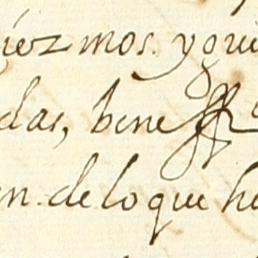 diezmos. y qui
das, bene
en. de lo que he